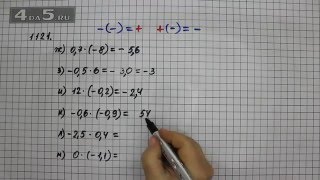 4ДА5.RU
-(-)=+ +(-)=-
1121.
ж) 0,7·(-8)=-5,6
з) -0,5·6=-3,0=-3
и) 12·(-0,2)=-2,4
к) -0,6·(-0,9)= 54
л) -2,5·0,4=
м) 0·(-1,1)=